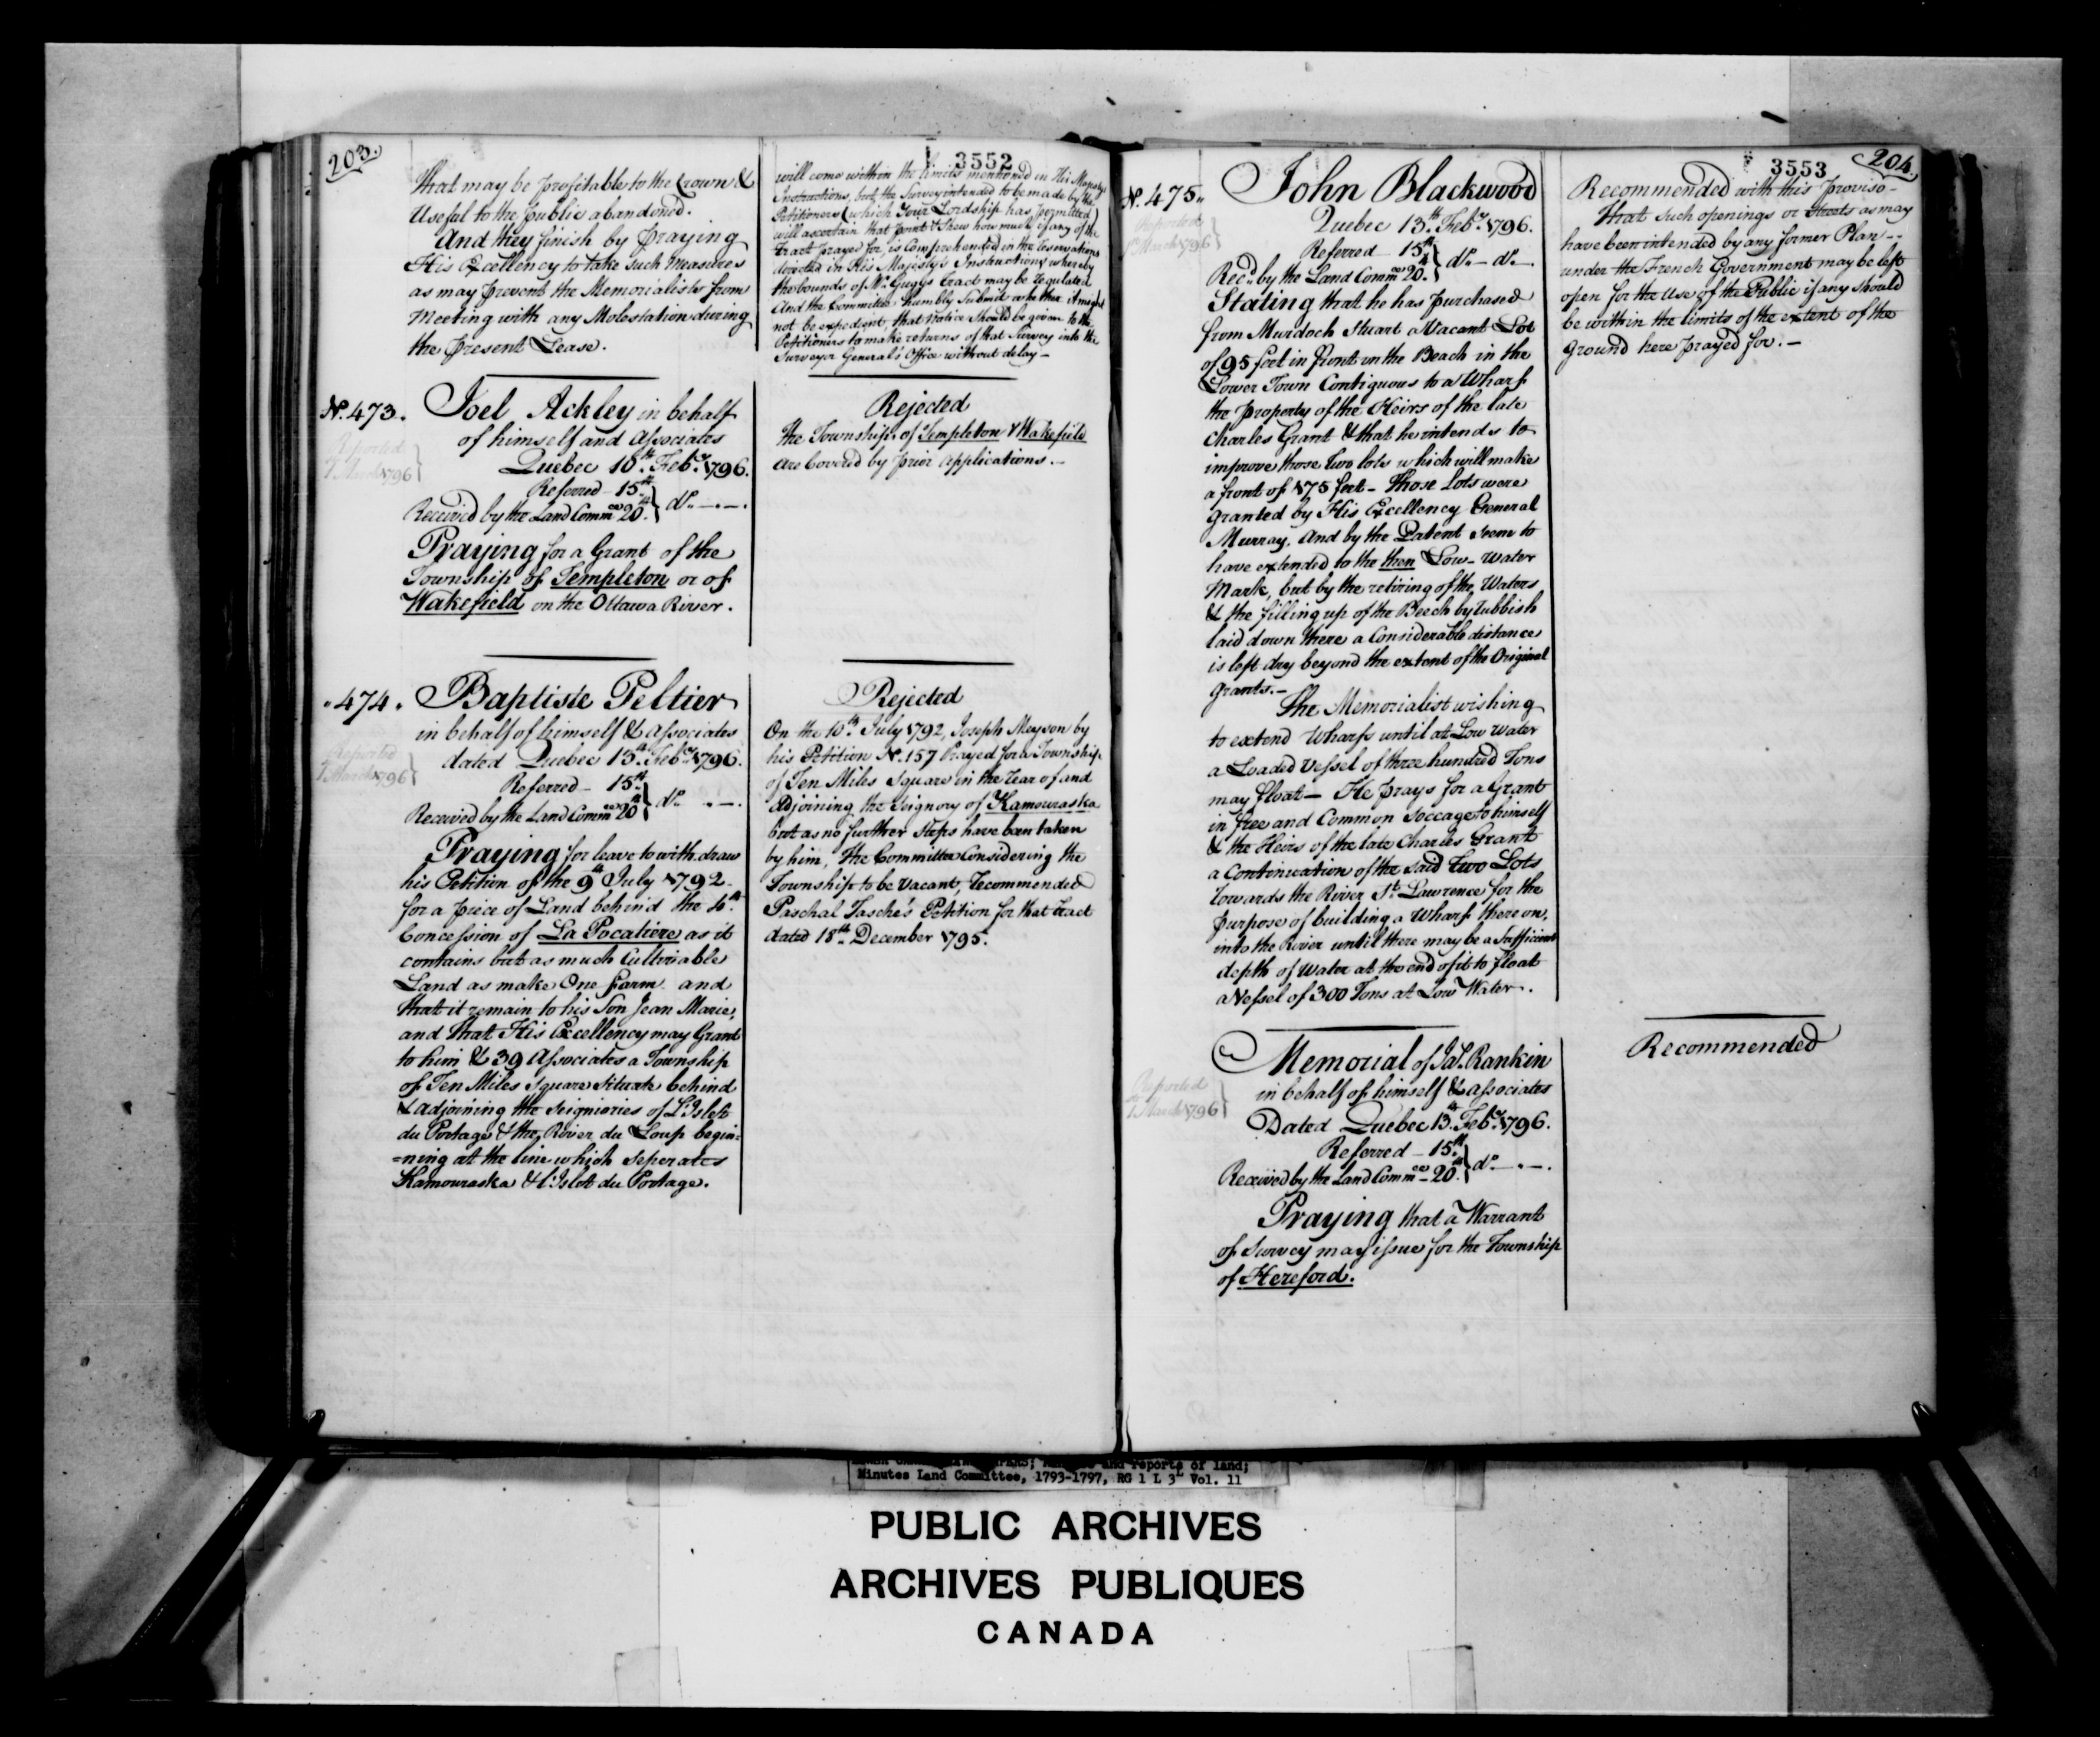 203.
3552
that may be profitable to the Crown &
Useful to the public abandoned.
And they finish by praying
His Excellency to take such Measures
as may prevent the Memorialists from
Meeting with any Molestation during
the present Lease.
will come within the limits mentioned in His Majestys
Instructions, but the Survey intended to be made by the
Petitioners (which Your Lordship has permitted)
will ascertain that point & Shew how much if any of the
Tract prayed for is Comprehended in the reservations
directed in His Majesty's Instructions whereby
the bounds of Mr. Gugy's tract may be regulated
And the Committee humbly Submit whether it might
not be expedient, that notice Should be given to the
Petitioners to make returns of that Survey into the
Surveyor General's Office without delay —
No. 473.
Joel Ackley in behalf
of himself and Associates
Quebec 10th Feby. 1796.
Reported
March 1796
Referred — 15th
Received by the Land Commee 20th } do. — . —.
Praying for a Grant of the
Township of Templeton or of
Wakefield on the Ottawa River.
Rejected
the Townships of Templeton & Wakefield
are Covered by prior applications. —
" 474.
Baptiste Peltier
in behalf of himself & Associates
dated Quebec 13th Feby. 1796.
Reported
March 1796
Referred — 15th
Received by the Land Commee 20th } do. " —.
Praying for leave to with draw
his Petition of the 9th July 1792.
for a piece of Land behind the 4th
Concession of La Pocatiere as it
contains but as much Cultivable
Land as make One farm and
that it remain to his Son Jean Marie,
and that His Excellency may Grant
to him & 39 Associates a Township
of Ten Miles Square Situate behind
& adjoining the Seigniories of L'Islet
du Portage & the River du Loup begin=
=ning at the line which Seperates
Kamouraska & L'Islet du Portage.
Rejected
On the 10th July 1792, Joseph Meyson by
his Petition No. 157 Prayed for a Township
of Ten Miles Square in the rear of and
adjoining the Seignory of Kamouraska
but as no further Steps have been taken
by him, the Committee Considering the
Township to be Vacant, recommended
Paschal Tasche's Petition for that tract
dated 18th December 1795.
3553
204.
No. 475.
John Blackwood
Quebec 13th Feby. 1796.
Reported
March 1796
Referred — 15th
Recd. by the Land Commee 20th } do. — do. —.
Stating that he has purchased
from Murdoch Stuart a Vacant Lot
of 95 feet in front on the Beach in the
Lower Town Contiguous to a Wharf
the property of the Heirs of the late
Charles Grant & that he intends to
improve those two lots which will make
a front of 175 feet — those Lots were
granted by His Excellency General
Murray, And by the Patent seem to
have extended to the then Low — water
Mark, but by the retiring of the Waters
& the filling up of the Beech by rubbish
laid down there a Considerable distance
is left dry beyond the extent of the Original
grants. —
The Memorialist wishing
to extend Wharfs until at Low Water
a Loaded Vessel of three hundred Tons
may float — He prays for a Grant
in free and Common Soccage to himself
& the Heirs of the late Charles Grant
a Continuation of the said two Lots
towards the River St. Lawrence for the
purpose of building a Wharf thereon,
into the River until there may be a Sufficient
depth of Water at the end of it to float
a Vessel of 300 Tons at Low Water.
Recommended with this proviso —
That such openings or Streets as may
have been intended by any former Plan —
under the French Government may be left
open for the Use of the Public if any Should
be within the limits of the extent of the
ground here prayed for. —
A Memorial of Ja. Rankin
in behalf of himself & Associates
Dated Quebec 13th Feby. 1796.
Reported
March 1796
Referred — 15th
Received by the Land Commee — 20th } do. — . —.
Praying that a Warrant
of Survey may issue for the Township
of Hereford.
Recommended
and reports of land;
Minutes Land Committee, 1793-1797, RG 1 L 3L Vol. 11
PUBLIC ARCHIVES
ARCHIVES PUBLIQUES
CANADA